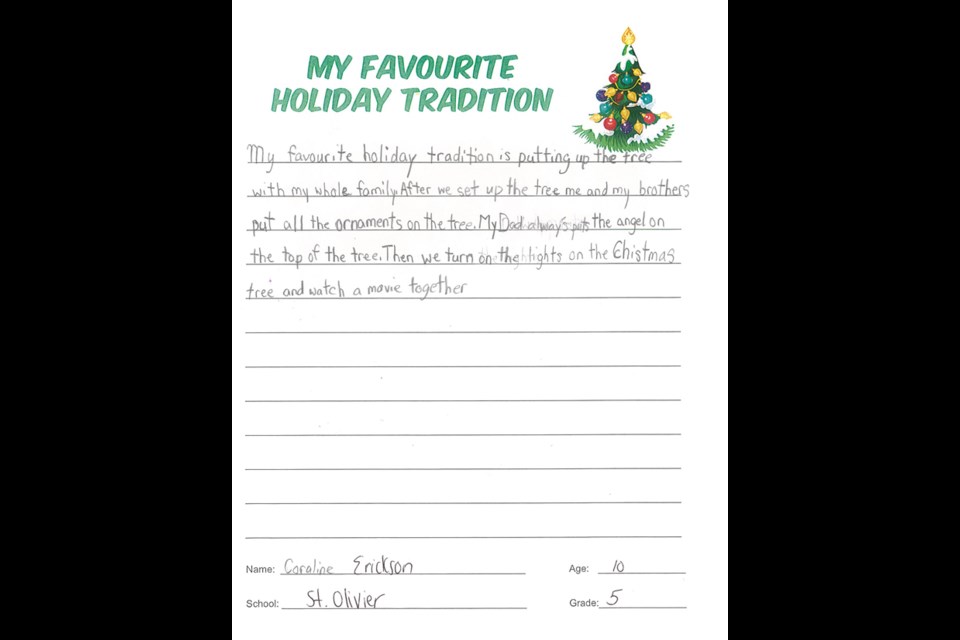 MY FAVOURITE
HOLIDAY TRADITION
My favourite holiday tradition is putting up the tree
with my whole family. After we set up the tree me and my brothers
put all the ornaments on the tree. My Dad always puts the angel on
the top of the tree. Then we turn on the lights on the Chistmas
tree and watch a movie together
Name: Coraline Erickson Age: 10
School: St. Olivier Grade: 5